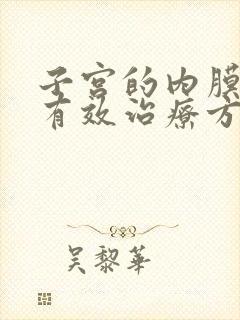 子宫的内膜
有效治療方
吳黎華